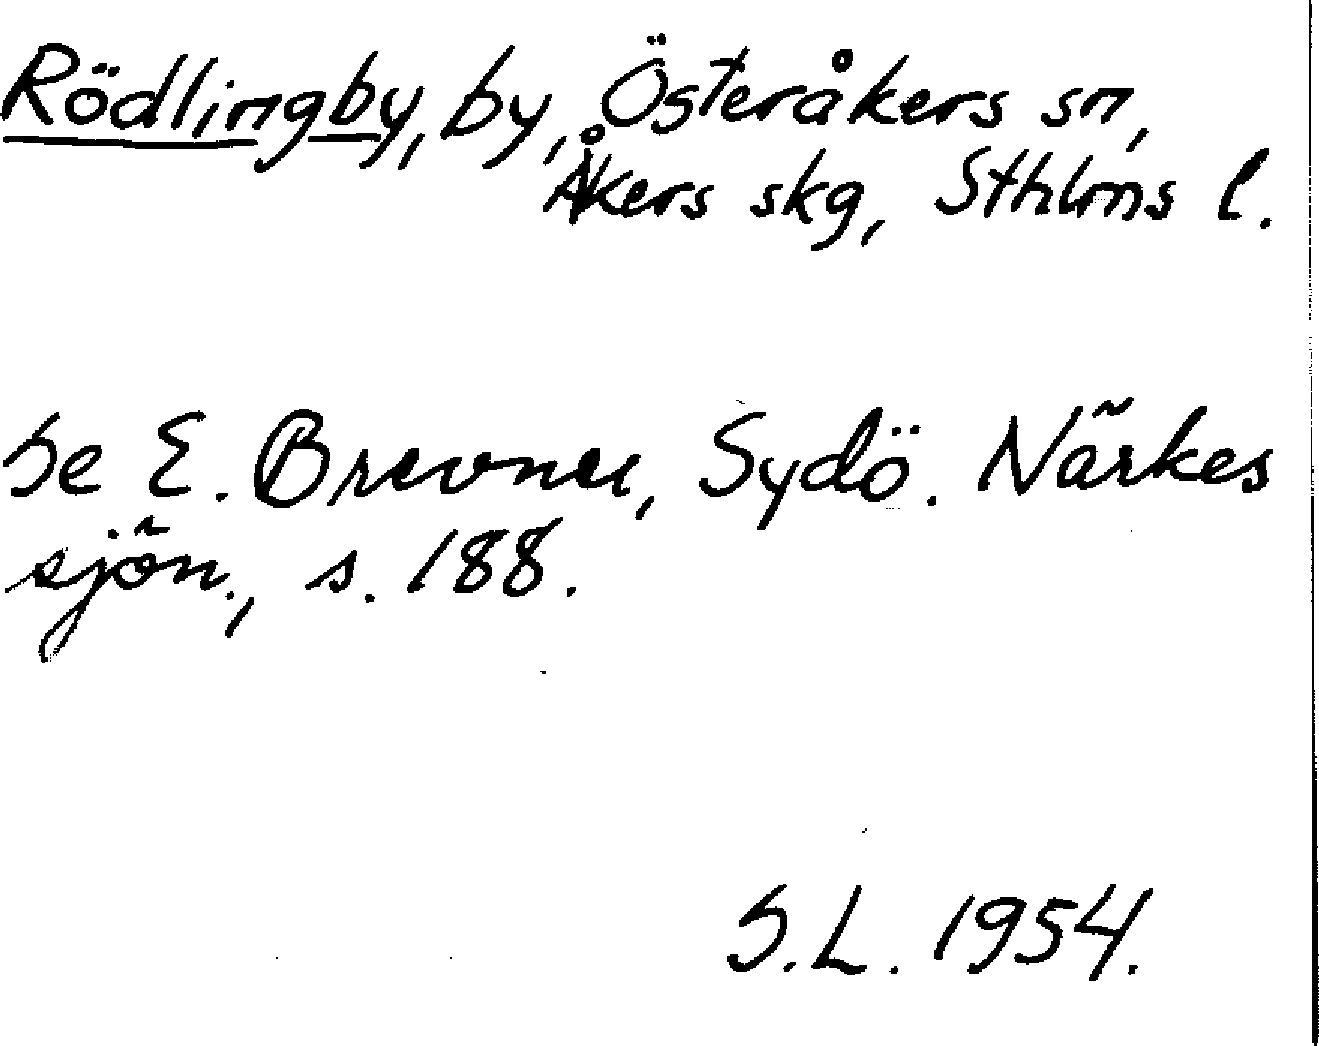 Rödlingby, by, Österåkers sn,
Åkers skg, Sthlms l.
Se E. Brevner, Sydö. Närkes
sjön., s. 188.
S.L. 1954.